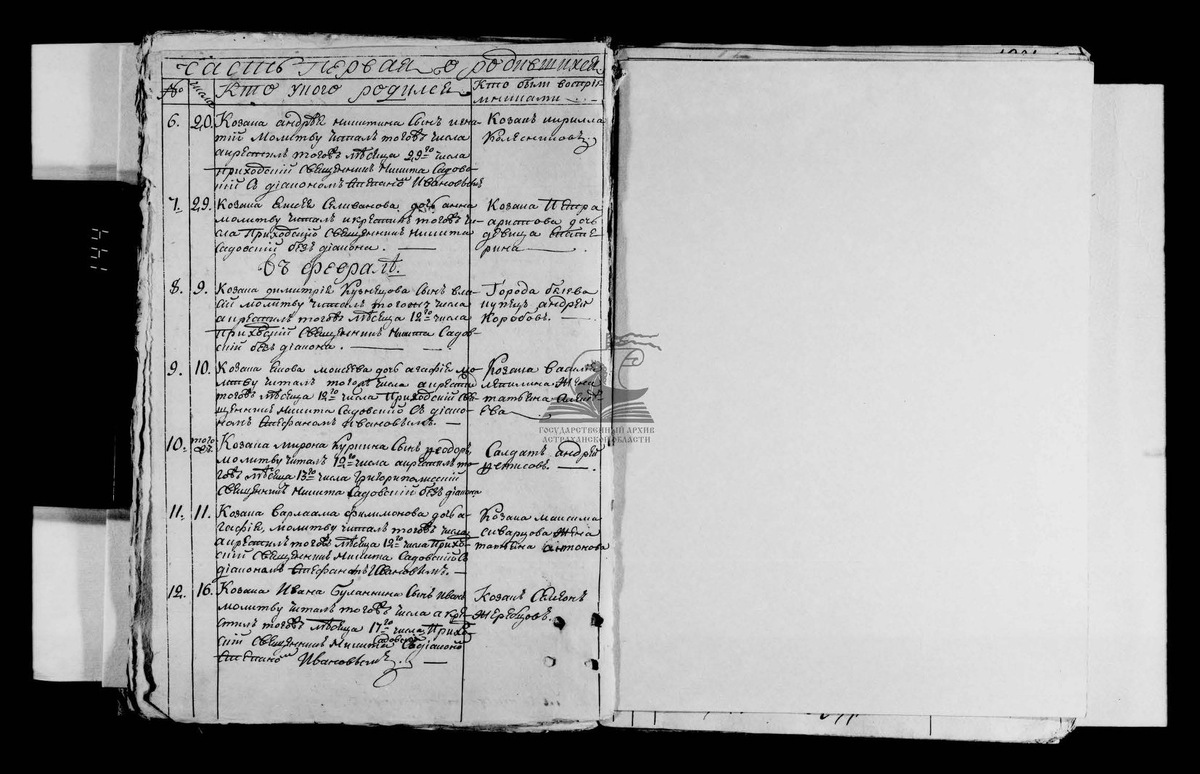 Часть первая о родившихся
№ числа Кто у кого родился Кто были восприемниками
6. 20. Козака андрѣя никитина сынъ игна
тій молитву читалъ тогожъ числа
а крестилъ тогожъ мѣсеца 29го числа
приходскій священникъ Никита Садов
скій съ діакономъ Стефаномъ Ивановымъ
Козакъ кирилла
Колесниковъ
7. 29. Козака Елисея Селиванова дочь анна
молитву читалъ и крестилъ тогожъ чи
сла Приходскій священникъ Никита
Садовскій безъ діакона.
Козака Петра
дочь
девица екате
рина
въ февралѣ.
8. 9. Козака димитрія Кузнецова сынъ вла
сій молитву читалъ тогожъ числа
а крестилъ тогожъ мѣсеца 12го числа
Прихдскій священникъ Никита Садов
скій безъ діакона.
Города
купецъ андрей
Коробовъ.
9. 10. Козака Моисеева дочь агафія мо
литву читалъ тогожъ числа а крести
тогожъ мѣсеца 12го числа Приходскій свя
щенникъ Никита Садовскій съ діако
номъ Стефаномъ Ивановымъ.
Козака Василія
жена
татьяна
ева
10. того ж Козака мирона Куркина сынъ феодоръ
молитву читалъ 12го числа а крестилъ то
гожъ мѣсеца 13го числа Григориполисскій
священникъ Никита Садовскій безъ діакона
Салдатъ андрей
денисовъ.
11. 11. Козака Варлаама филимонова дочь а
гафія молитву читалъ тогожъ числа
а крестилъ тогожъ мѣсеца 12го числа Приход
скій священникъ Никита Садовскій с
діакономъ Стефаномъ Ивановымъ.
Козака максима
сиварцова жена
татьяна антонова
12. 16. Козака Ивана Буланкина сынъ Иванъ
молитву читалъ тогожъ числа а кре
стилъ тогожъ мѣсеца 17го числа Приход
скій священникъ Никита Садовскій съ діакономъ
Стефаномъ Ивановымъ.
Козакъ Семенъ
Жеребцовъ.
ГОСУДАРСТВЕННЫЙ АРХИВ
АСТРАХАНСКОЙ ОБЛАСТИ